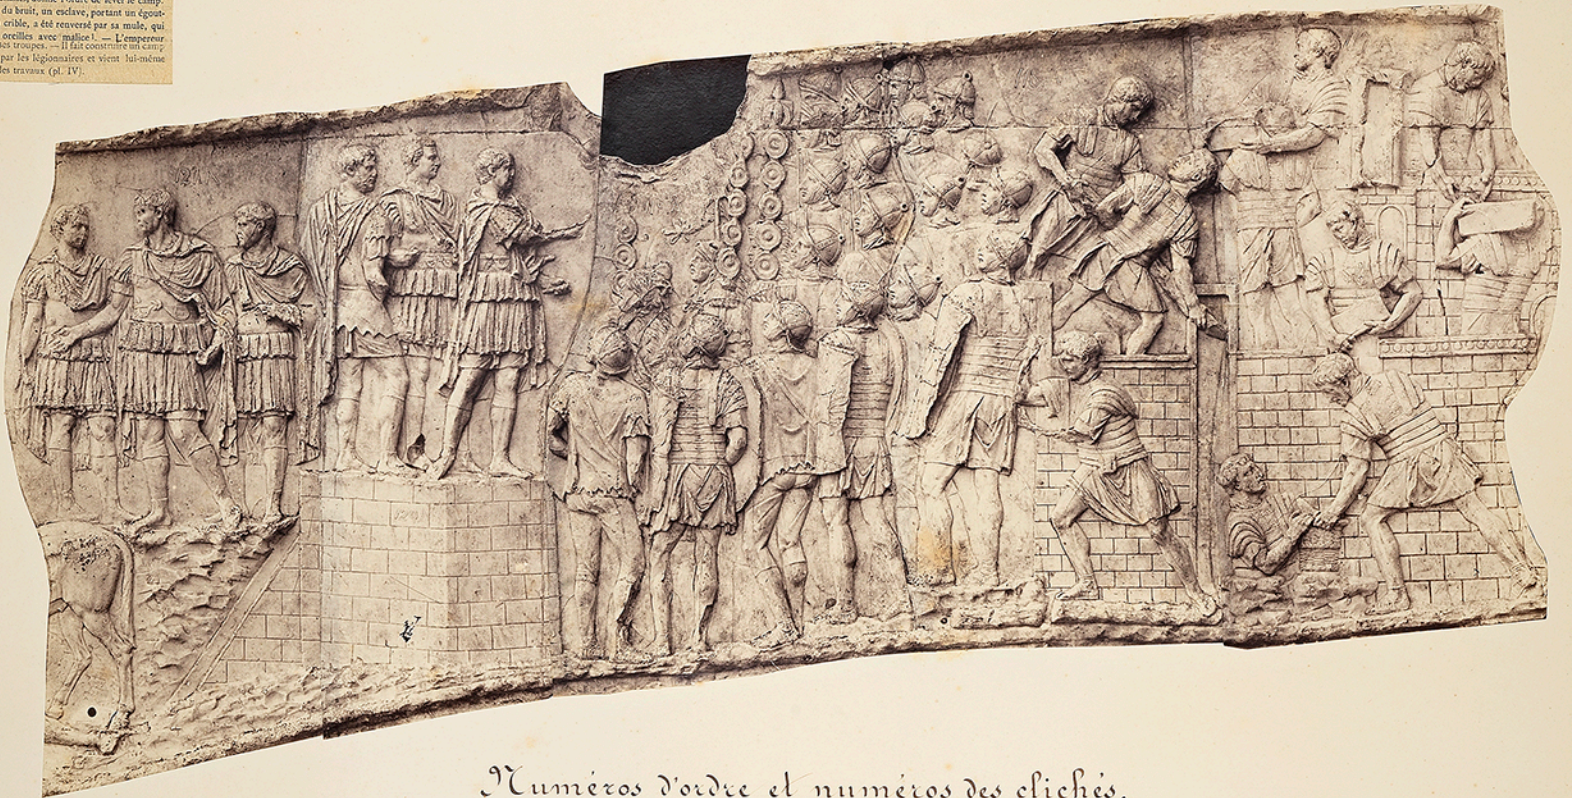 donne l'ordre de lever le camp.
du bruit, un esclave, portant un égout-
crible, a été renversé par sa mule, qui
oreilles avec malice¹. — L'empereur
ses troupes. — Il fait construire un camp
par les légionnaires et vient lui-même
les travaux (pl. IV).
Numéros d'ordre et numéros des clichés.